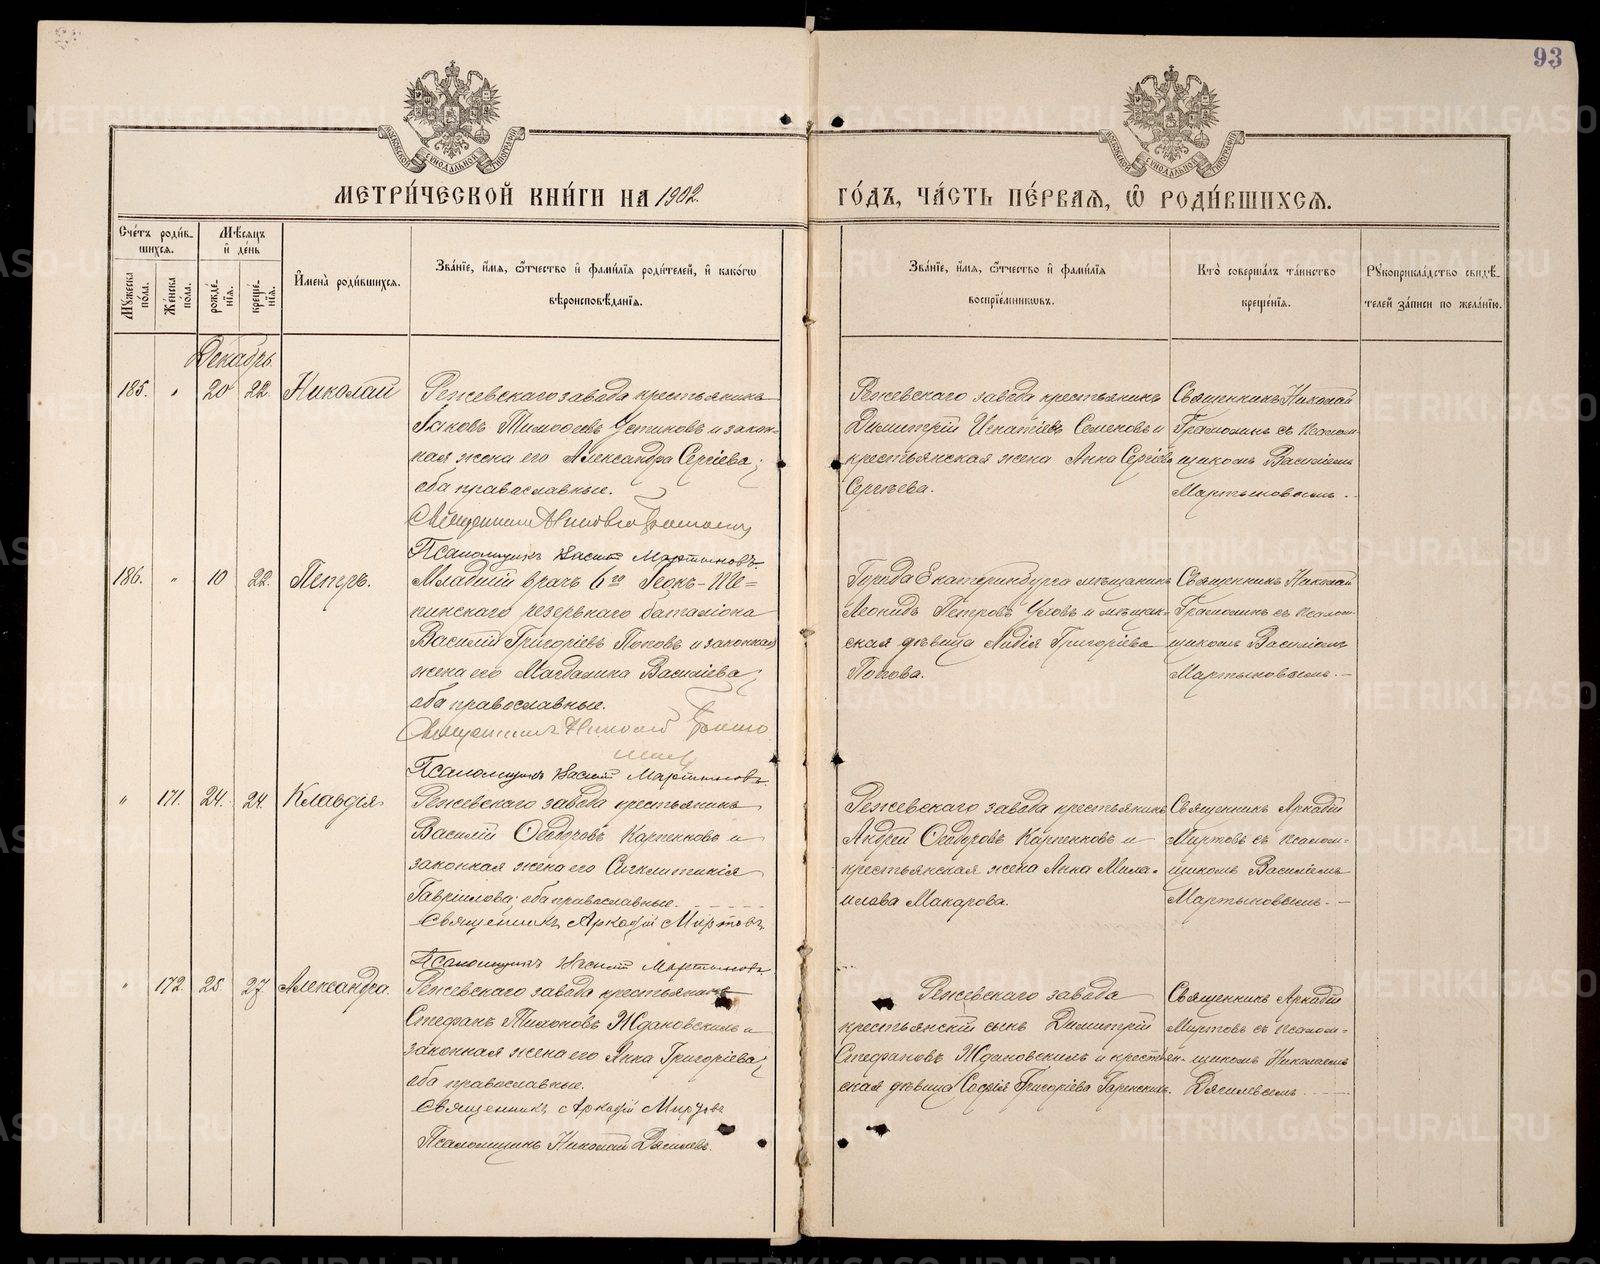 93
МОСКОВСКОЙ СѴНОДАЛЬНОЙ ТИПОГРАФІИ
МОСКОВСКОЙ СѴНОДАЛЬНОЙ ТИПОГРАФІИ
МЕТРИ́ЧЕСКОЙ КНИ́ГИ НА 1902
ГО́ДЪ, ЧА́СТЬ ПЕ́РВАѦ, Ѽ РОДИ́ВШИХСѦ.
Сче́тъ роди́в-
шихсѧ.
Мꙋжеска по́ла.
Же́нска пола.
Мѣ́сѧцъ
и҆ де́нь
рожде́-нїѧ.
креще́-нїѧ.
И҆мена̀ роди́вшихсѧ.
Зва́нїе, и҆́мѧ, ѻ҆́тчество и҆ фами́лїѧ роди́телей, и҆ како́гѡ
вѣроисповѣ́данїѧ.
Зва́нїе, и҆́мѧ, ѻ҆́тчество и҆ фами́лїѧ
воспрїе́мникѡвъ.
Кто̀ соверша́лъ та́инство
креще́нїѧ.
Рꙋкоприкла́дство свидѣ́-
телей за́писи по жела́нїю.
Декабрь
185. " 20 22. Николай
Режевскаго завода крестьянинъ
Іаковъ Тимоѳеевъ Устиновъ и закон-
ная жена его Александра Сергіева;
оба православные.
Священникъ Николай Грамолинъ
Псаломщикъ Василій Мартыновъ.
Режевскаго завода крестьянинъ
Димитрій Игнатіевъ Семеновъ и
крестьянская жена Анна Сергіева
Сергѣева.
Священникъ Николай
Грамолинъ съ псалом-
щикомъ Василіемъ
Мартыновымъ.
186. " 10 22. Петръ.
Младшій врачъ 6го
пинскаго резервнаго баталіона
Василій Григоріевъ Поповъ и законная
жена его Магдалина Василіева;
оба православные.
Священникъ Николай Грамо
линъ
Псаломщикъ Василій Мартыновъ
Города Екатеринбурга мѣщанинъ
Леонидъ Петровъ и мѣщан-
ская дѣвица Лидія Григоріева
Попова.
Священникъ Николай
Грамолинъ съ псалом-
щикомъ Василіемъ
Мартыновымъ.
" 171. 24. 24. Клавдія
Режевскаго завода крестьянинъ
Василій Ѳеодоровъ Карпенковъ и
законная жена его Синклитикія
Гавріилова; оба православные.
Священникъ Аркадій Миртовъ
Псаломщикъ Василій Мартыновъ
Режевскаго завода крестьянинъ
Андрей Ѳеодоровъ Карпенковъ и
крестьянская жена Анна
Макарова.
Священникъ Аркадій
Миртовъ съ псалом-
щикомъ Василіемъ
Мартыновымъ.
" 172. 25. 27. Александра.
Режевскаго завода крестьянинъ
Стефанъ Тихоновъ Ждановскихъ и
законная жена его Анна Григоріева;
оба православные.
Священникъ Аркадій Миртовъ
Псаломщикъ Николай Дягилевъ.
Режевскаго завода
крестьянскій сынъ Димитрій
Стефановъ Ждановскихъ и крестьян-
ская дѣвица Софія Григоріева
Священникъ Аркадій
Миртовъ съ псалом-
щикомъ Николаемъ
Дягилевымъ.
METRIKI.GASO-URAL.RU